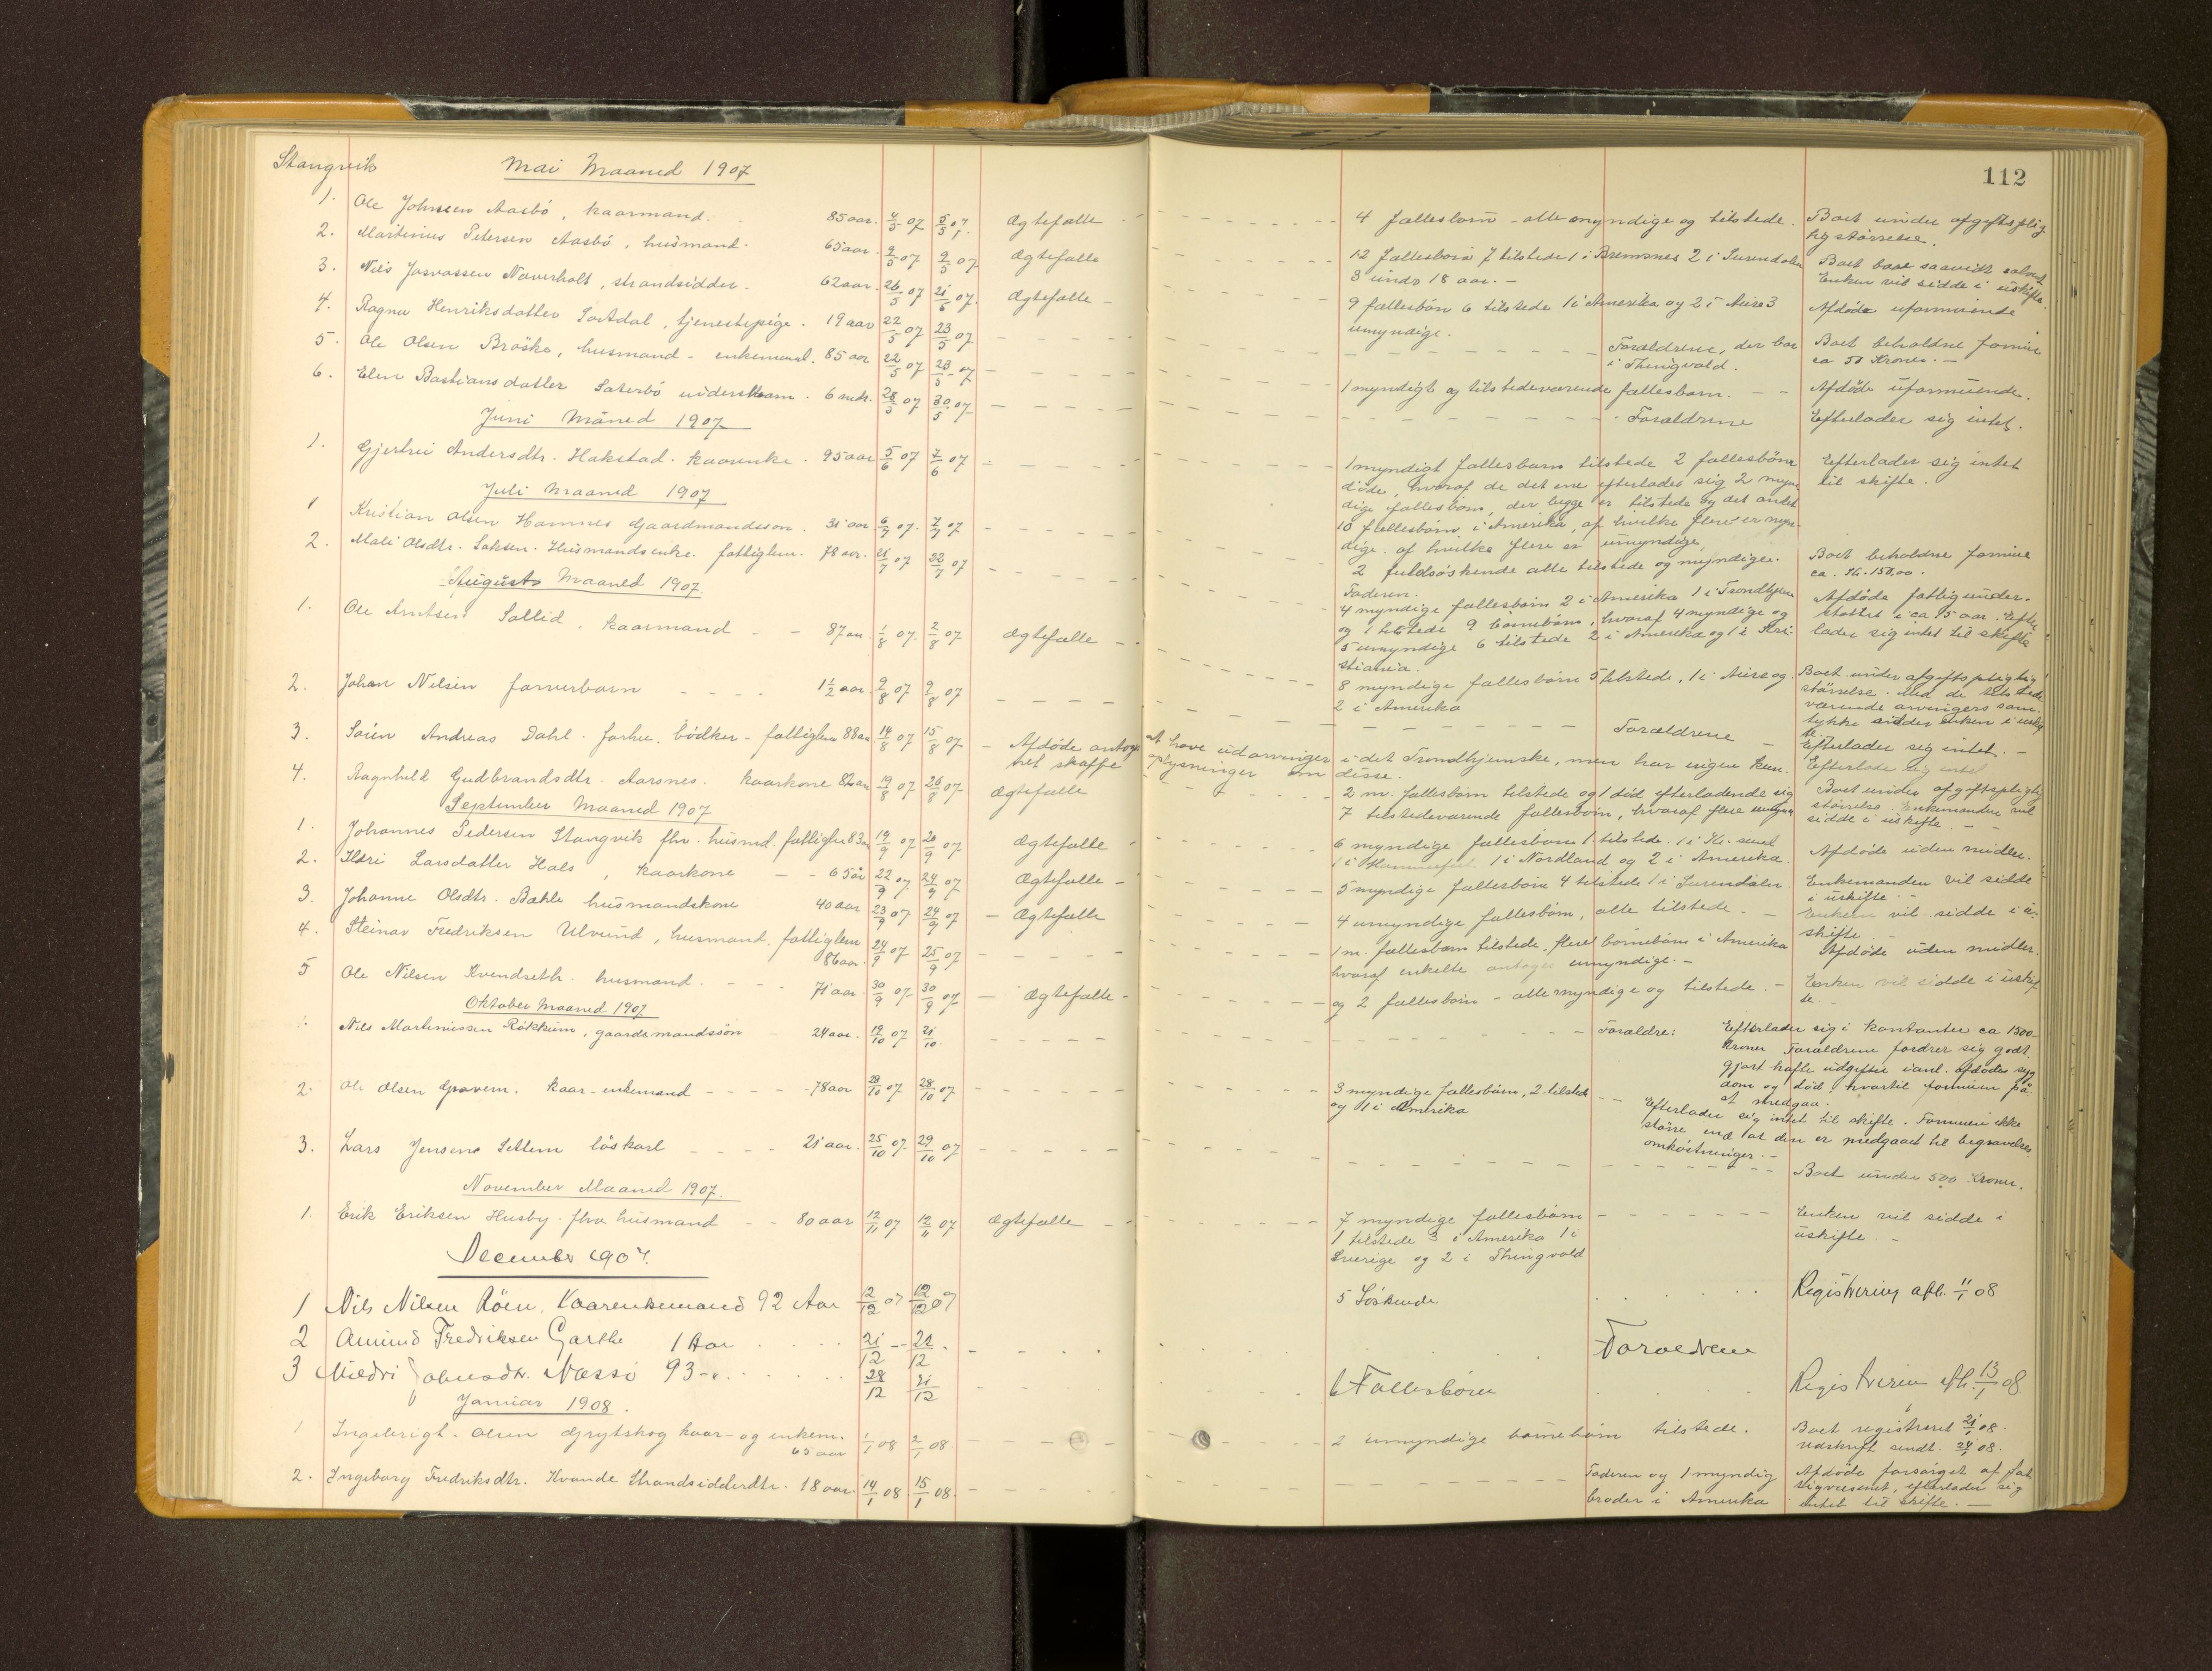 Stangvik Mai Maaned 1907
112
1. Ole Johnsen Aasbö, kaarmand. 85 aar. 4/5 07 5/5 07. Ægtefælle - 4 fællesbörn - alle myndige og tilstede. Boet under afgiftsplig
tig störrelse.
2. Martinius Petersen Aasbö, husmand. 65 aar. 2/5 07 9/5 07 Ægtefælle 12 fællesbörn 7 tilstede 1 i Bremsnes 2 i Surendalen Boet saavidt solvent
3 under 18 aar. - Enken vil sidde i uskifte.
3. Nils Josvassen Naverholt, strandsidder. 62 aar. 26/5 07 21/6 07. Ægtefælle - 9 fællesbörn 6 tilstede 1 i Amerika og 2 i Aure 3 Afdöde uformuende
umyndige.
4. Ragna Henriksdatter tjenestepige. 19 aar 22/5 07 23/5 07. Forældrene, der bor Boet beholdne formue
i Thingvold. ca 50 Kroner. -
5. Ole Olsen Bröske, husmand - enkemand. 85 aar 22/5 07 23/5 07 - 1 myndigt og tilstedeværende fællesbarn. - - Afdöde uformuende.
6. Elen Bastiansdatter Sæterbö 6 mdr. 28/5 07 30/5 07 - Forældrene Efterlader sig intet.
Juni Måned 1907
1. Gjertrü Andersdtr. Hakstad. kaarenke. 95 aar 5/6 07 7/6 07 - 1 myndigt fællesbarn tilstede 2 fællesbörn Efterlader sig intet
döde, hvoraf de det ene efterlader sig 2 myn til skifte.
dige fællesbörn, der begge er tilstede og det andet
10 fællesbörn i Amerika, af hvilke flere er myn-
dige. af hvilke flere er umyndige
Juli Maaned 1907
1 Kristian Olsen Hamnes Gaardmandssön. 31 aar 6/7 07. 7/7 07 2 fuldsöskende alle tilstede og myndige. Boet beholdne formue
ca. Kr. 150,00.
2. Mali Olsdtr. Saksen. Husmandsenke. fattiglem. 78 aar. 21/7 07 22/7 07 Faderen.
4 myndige fællesbörn 2 i Amerika 1 i Trondhjem Afdöde fattigunder-
og 1 tilstede 9 börnebörn, hvoraf 4 myndige og stöttet i ca 15 aar. Efter
5 umyndige 6 tilstede 2 i Amerika og 1 i Kri- lader sig intet til skifte
stiania.
Augusts Maaned 1907.
1. Ole Arntsen Sollid. kaarmand - - 87 aar. 1/8 07. 2/8 07 Ægtefælle - 8 myndige fællesbörn 5 tilstede, 1 i Aure og Boet under afgiftspligtig
2 i Amerika störrelse. Med de tilstede
værende arvingers sam-
tykke sidder enken i uskif
te.
2. Johan Nilsen farverbarn - - - - 1 1/2 aar. 9/8 07 9/8 07 Forældrene - Efterlader sig intet. -
3. Sören Andreas Dahl. forhv. bödker - fattiglem 88 aar 14/8 07 15/8 07 - Afdöde antoges at have udarvinger i det Trondhjemske, men har ingen kun- Efterlader sig intet
net skaffe oplysninger om disse.
4. Ragnhild Gudbrandsdtr. Aarsnes. kaarkone 82 aar 19/8 07 26/8 07 Ægtefælle 2 m. fællesbörn tilstede og 1 död efterladende sig Boet under afgiftspligtig
7 tilstedeværende fællesbörn, hvoraf flere umyn störrelse. Enkemanden vil
sidde i uskifte. -
September Maaned 1907
1. Johannes Pedersen Stangvik fhv. husmd. fattiglem 83 aar 19/9 07 20/9 07 Ægtefælle 6 myndige fællesbörn 1 tilstede. 1 i Kr. sund Afdöde uden midler.
1 i Hammerfest. 1 i Nordland og 2 i Amerika.
2. Ildri Larsdatter Hals, kaarkone - - 65 år 22/9 07 24/9 07 Ægtefælle - 5 myndige fællesbörn 4 tilstede 1 i Surendalen. Enkemanden vil sidde
i uskifte. -
3. Johanne Olsdtr. Bæhle husmandskone 40 aar 23/9 07 24/9 07 - Ægtefælle 4 umyndige fællesbörn, alle tilstede. - Enken vil sidde i u-
skifte
4. Steinar Fredriksen Ulvund, husmand. fattiglem 24/9 07 25/9 07 - 1 m. fællesbarn tilstede, flere börnebörn i Amerika Afdöde uden midler.
86 aar. hvoraf enkelte antoges umyndige. -
5 Ole Nilsen Kvendseth. husmand. - - - 71 aar. 30/9 07 30/9 07 - Ægtefælle - og 2 fællesbörn - alle myndige og tilstede. - Enken vil sidde i uskif
te. -
Oktober Maaned 1907
1. Nils Martiniussen Rökkum, gaardsmandssön 24 aar. 19/10 07 21/10. Forældre: Efterlader sig i kontanter ca 1500
Kroner Forældrene fordrer sig godt
gjort hafte udgifter i anl. afdödes syg
dom og död hvortil formuen på-
at medgaa.
2. Ole Olsen kaar-enkemand - - - - 78 aar 28/10 07 28/10 07 3 myndige fællesbörn, 2 tilstede - - Efterlader sig intet til skifte. Formuen ikke
og 1 i Amerika större end at den er medgaaet til begravelses
omkostninger. -
3. Lars Jensen Settem löskarl - - - - 21 aar. 25/10 07 29/10 07 - Boet under 500 Kroner.
November Maaned 1907.
1. Erik Eriksen Husby. fhv husmand - - 80 aar 12/11 07 12/11 07 Ægtefælle - 7 myndige fællesbörn - Enken vil sidde i
1 tilstede 3 i Amerika 1 i uskifte. -
Sverige og 2 i Thingvold
December 1907.
1 Nils Nilsen Röen, Kaarenkemand 92 Aar 12/12 07 12/12 07 5 Söskende Registrering afh. 11/1 08
2 Amund Fredriksen Garthe 1 Aar 21/12 - 22/12. Forældrene
3 Mildri Johnsdtr. Næssö 93 -"- 28/12 31/12 6 Fællesbörn Registrering afh. 13/1 08
Januar 1908.
1 Ingebrigt. Olsen Grytskog kaar- og enkem. 1/1 08 2/1 08. 2 umyndige börnebörn tilstede. Boet registreret 21/1 08.
65 aar Udskrift sendt. 24/1 08.
2. Ingeborg Fredriksdtr. Kvande Strandsidderdtr. 18 aar. 14/1 08 15/1 08. Faderen og 1 myndig Afdöde forsörget af fat
broder i Amerika tigvæsenet, efterlader sig
intet til skifte. -